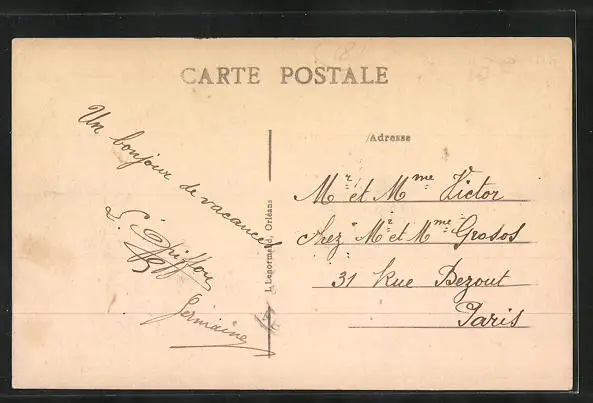 CARTE POSTALE
Adresse
Un bonjour de vacances
L. Griffon
Germaine
L. Lenormand, Orléans
Mr et Mme Victor
chez Mr et Mme Grosos
31 Rue Bezout
Paris